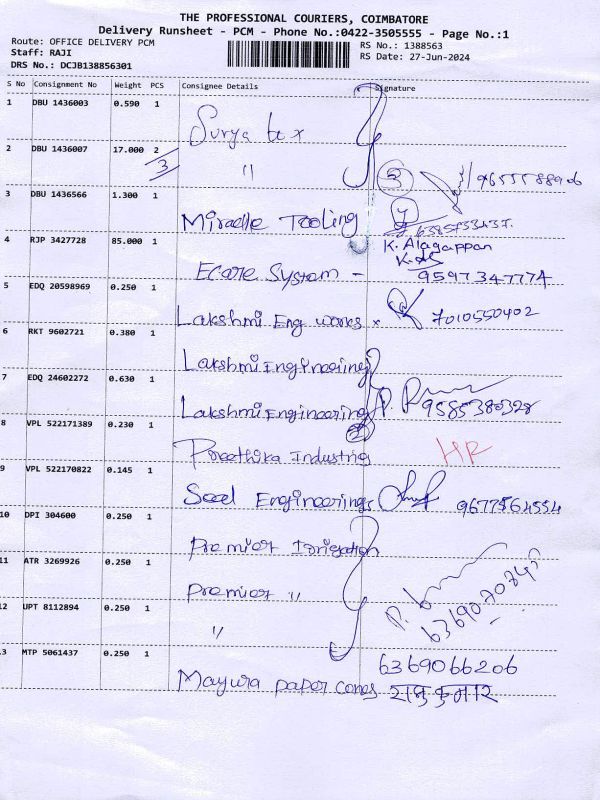 THE PROFESSIONAL COURIERS, COIMBATORE
Delivery Runsheet - PCM - Phone No.:0422-3505555 - Page No.:1
Route: OFFICE DELIVERY PCM
Staff: RAJI
DRS No.: DCJB138856301
RS No.: 1388563
RS Date: 27-Jun-2024
S No Consignment No Weight PCS Consignee Details Signature
1 DBU 1436003 0.590 1
Surya
2 DBU 1436007 17.000 2
3
"
5 9655588906
3 DBU 1436566 1.300 1
Miraclle Tooling
4 RJP 3427728 85.000 1
K. Alagappan
Ecare System - 9597347774
5 EDQ 20598969 0.250 1
Lakshmi Eng works x 7010550402
6 RKT 9602721 0.380 1
Lakshmi Engineering
7 EDQ 24602272 0.630 1
Lakshmi Engineering 9585380328
2
8 VPL 522171389 0.230 1
Preethika
HR
9 VPL 522170822 0.145 1
Engineerings
10 DPI 304600 0.250 1
Premier Irrigation
11 ATR 3269926 0.250 1
Premier "
12 UPT 8112894 0.250 1
"
13 MTP 5061437 0.250 1
6369066206
Mayura paper cones रामकुमार